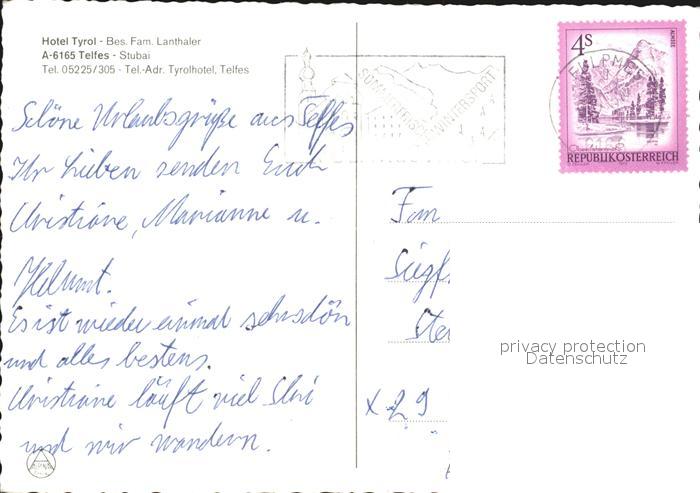 Hotel Tyrol - Bes. Fam. Lanthaler
A-6165 Telfes - Stubai
Tel. 05225/305 - Tel.-Adr. Tyrolhotel, Telfes
Schöne Urlaubsgrüße aus Telfes
Ihr Lieben senden Euch
Christiane, Marianne u.
Helmut.
Es ist wieder einmal sehr schön
und alles bestens.
Christiane läuft viel Ski
und wir wandern.
SOMMERFRISCHE WINTERSPORT
FULPMES
4s
ALMSEE
REPUBLIK ÖSTERREICH
Fam
Siegf.
Ste
X 29
privacy protection
Datenschutz